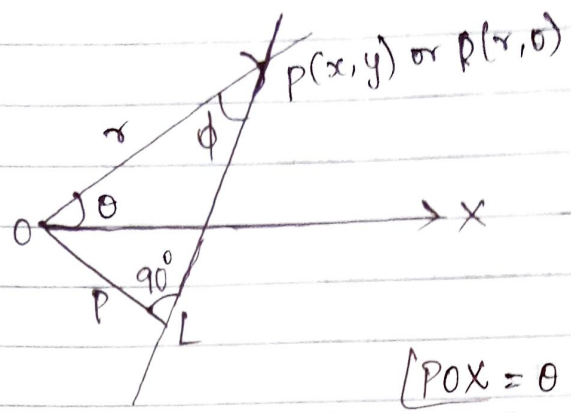 P(x,y) or P(r,θ)
r
φ
θ
O
X
90°
P
L
∠POX = θ